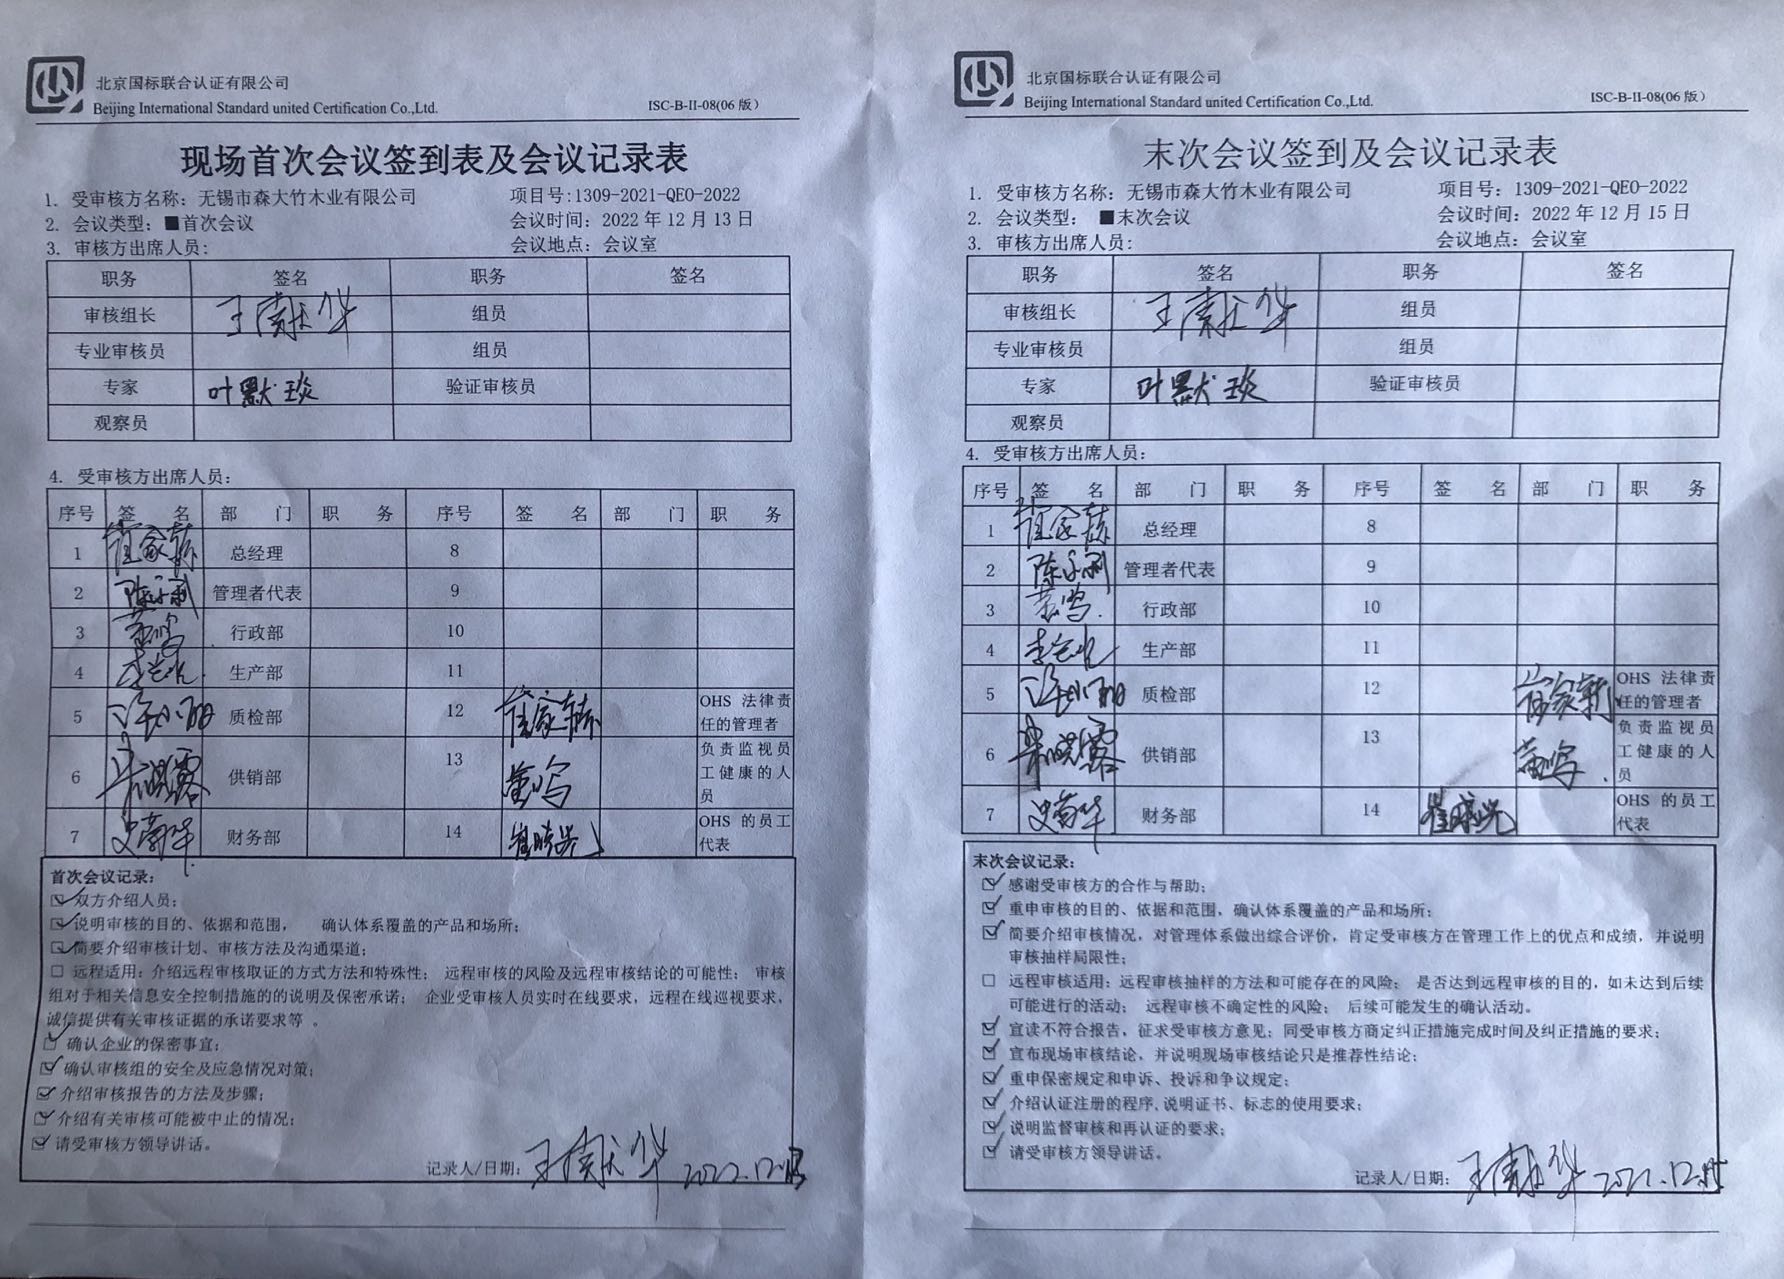 北京国标联合认证有限公司
Beijing International Standard united Certification Co.,Ltd.
ISC-B-II-08(06 版)
现场首次会议签到表及会议记录表
1. 受审核方名称：无锡市森大竹木业有限公司 项目号:1309-2021-QEO-2022
2. 会议类型：■首次会议 会议时间：2022 年 12 月 13 日
3. 审核方出席人员： 会议地点：会议室
职务 签名 职务 签名
审核组长 王献华 组员
专业审核员 组员
专家 叶默琰 验证审核员
观察员
4. 受审核方出席人员：
序号 签 名 部 门 职 务 序号 签 名 部 门 职 务
1 总经理 8
2 管理者代表 9
3 行政部 10
4 生产部 11
5 质检部 12 OHS 法律责
任的管理者
6 供销部 13 负责监视员
工健康的人
员
7 史菊华 财务部 14 崔晓光 OHS 的员工
代表
首次会议记录：
☑双方介绍人员；
☑说明审核的目的、依据和范围， 确认体系覆盖的产品和场所；
☑简要介绍审核计划、审核方法及沟通渠道；
□ 远程适用：介绍远程审核取证的方式方法和特殊性； 远程审核的风险及远程审核结论的可能性； 审核
组对于相关信息安全控制措施的的说明及保密承诺； 企业受审核人员实时在线要求，远程在线巡视要求，
诚信提供有关审核证据的承诺要求等 。
☑ 确认企业的保密事宜；
☑确认审核组的安全及应急情况对策；
☑介绍审核报告的方法及步骤；
☑介绍有关审核可能被中止的情况；
☑请受审核方领导讲话。
记录人/日期：王献华 2022.12.13
北京国标联合认证有限公司
Beijing International Standard united Certification Co.,Ltd.
ISC-B-II-08(06 版)
末次会议签到及会议记录表
1. 受审核方名称：无锡市森大竹木业有限公司 项目号：1309-2021-QEO-2022
2. 会议类型： ■末次会议 会议时间：2022 年 12 月 15 日
3. 审核方出席人员： 会议地点：会议室
职务 签名 职务 签名
审核组长 王献华 组员
专业审核员 组员
专家 叶默琰 验证审核员
观察员
4. 受审核方出席人员：
序号 签 名 部 门 职 务 序号 签 名 部 门 职 务
1 总经理 8
2 管理者代表 9
3 行政部 10
4 生产部 11
5 质检部 12 OHS 法律责
任的管理者
6 供销部 13 负责监视员
工健康的人
员
7 史菊华 财务部 14 崔晓光 OHS 的员工
代表
末次会议记录：
☑ 感谢受审核方的合作与帮助；
☑ 重申审核的目的、依据和范围，确认体系覆盖的产品和场所；
☑ 简要介绍审核情况，对管理体系做出综合评价，肯定受审核方在管理工作上的优点和成绩，并说明
审核抽样局限性；
□ 远程审核适用：远程审核抽样的方法和可能存在的风险； 是否达到远程审核的目的，如未达到后续
可能进行的活动； 远程审核不确定性的风险； 后续可能发生的确认活动。
☑ 宣读不符合报告，征求受审核方意见；同受审核方商定纠正措施完成时间及纠正措施的要求；
☑ 宣布现场审核结论，并说明现场审核结论只是推荐性结论；
☑ 重申保密规定和申诉、投诉和争议规定；
☑ 介绍认证注册的程序,说明证书、标志的使用要求；
☑ 说明监督审核和再认证的要求；
☑ 请受审核方领导讲话。
记录人/日期：王献华 2022.12.15